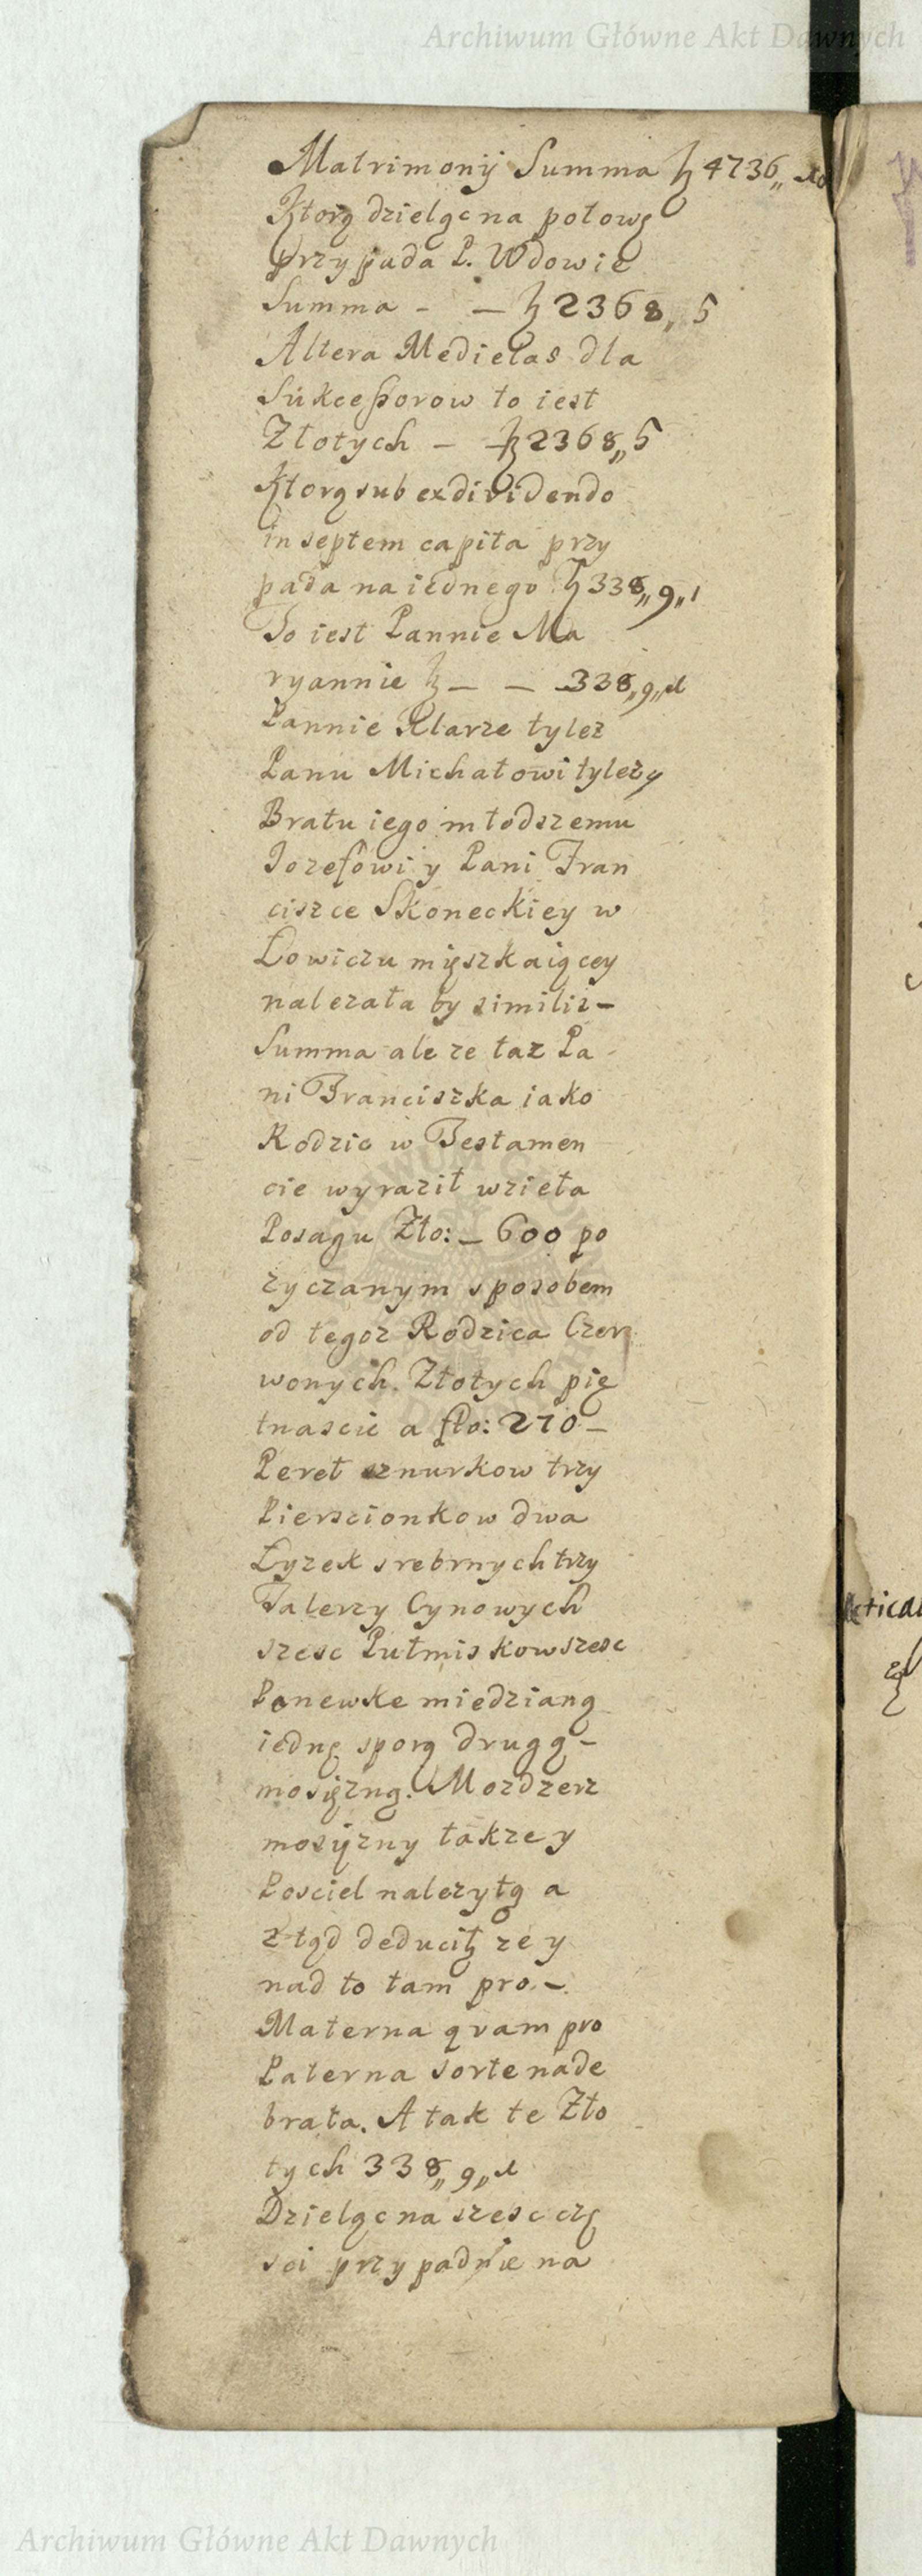 Archiwum Główne Akt Dawnych
Matrimonij Summa ꝫ 4736,, 10
Ktorą dzieląc na połowę
przypada P. Wdowie
Summa - — ꝫ 2368,, 5
Altera Medietas dla
Sukceßorow to iest
Złotych — ꝫ 2368,, 5
Ktorą sub exdividendo
in septem capita przy
pada na iednego ꝫ 338,, 9,, 1
To iest Pannie Ma
ryannie ꝫ — — 338,, 9,, 1
Pannie Klarze tylez
Panu Michałowi tylez y
Bratu iego młodszemu
Iozefowi y Pani Fran
ciszce Skoneckiey w
Łowiczu mięszkaiącey
nalezała by similis —
Summa ale ze taz Pa
ni Franciszka iako
Rodzic w Testamen
cie wyraził wzieła
Posagu Zło: — 600 po
zyczanym sposobem
od tegoz Rodzica Czer
wonych Złotych pię
tnascie a flo: 270 —
Pereł sznurkow trzy
Pierscionkow dwa
Łyzek srebrnych trzy
Talerzy Cynowych
szesc Pułmiskow szesc
Panewke miedzianą
iednę sporą drugą —
mosięzną. Mozdzerz
mosięzny takze y
Posciel nalezytą a
ztąd deducitꝫ ze y
nad to tam pro —
Materna qvam pro
Paterna sorte nade
brała. A tak te Zło
tych 338,, 9,, 1
Dzieląc na szesc czę
sci przypadnie na
Archiwum Główne Akt Dawnych